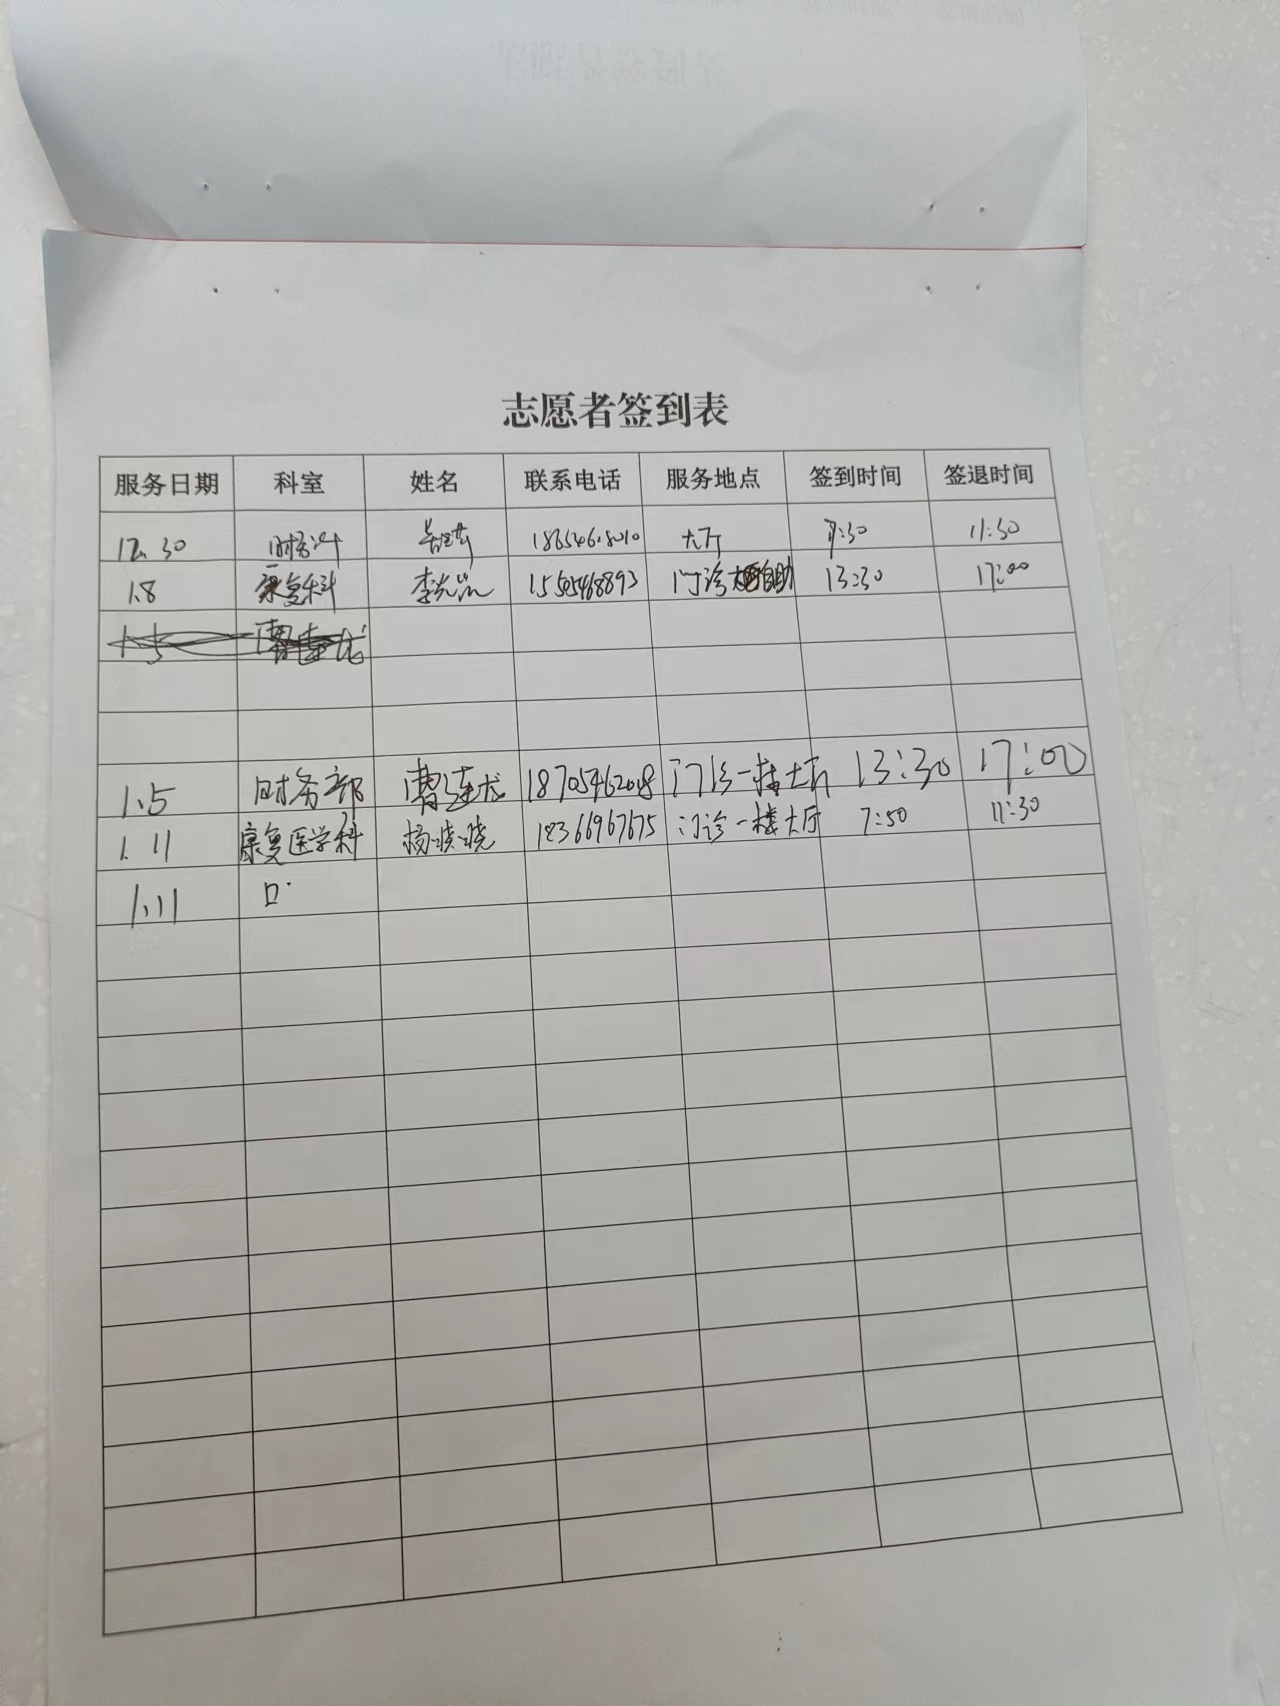 志愿者签到表
服务日期 科室 姓名 联系电话 服务地点 签到时间 签退时间
12.30 财务科 18654618010 大厅 11:30
1.8 康复科 15505468893 门诊 自助 13:30 17:00
1.5 曹连龙
1.5 财务部 曹连龙 18705462048 门诊一楼大厅 13:30 17:00
1.11 康复医学科 杨晓晓 18366967675 门诊一楼大厅 7:50 11:30
1.11 口